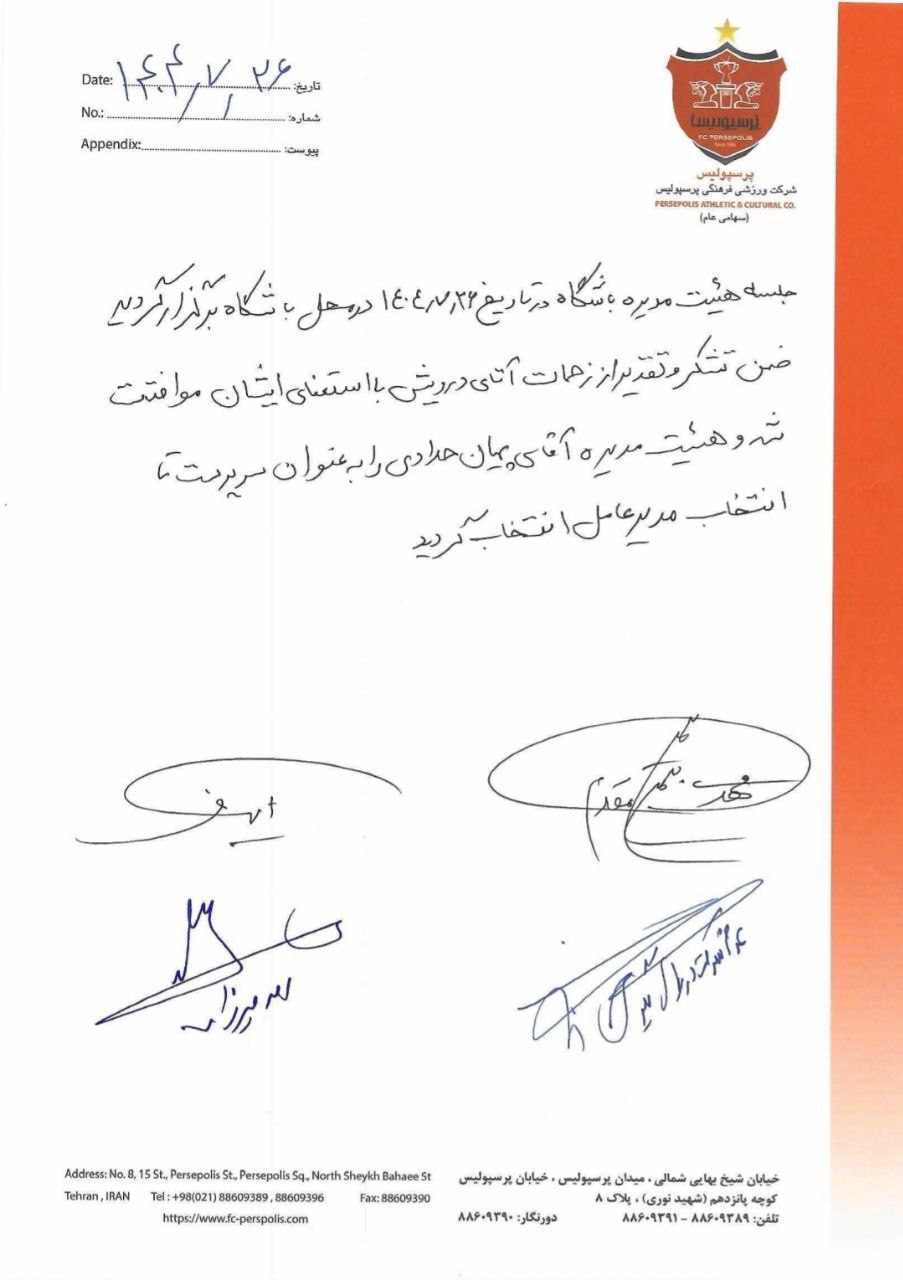 Date: ۱۴۰۴/۷/۲۶ تاریخ:
No.: ۱ شماره:
Appendix: پیوست:
پرسپولیس
FC PERSEPOLIS
پرسپولیس
شرکت ورزشی فرهنگی پرسپولیس
PERSEPOLIS ATHLETIC & CULTURAL CO.
(سهامی عام)
جلسه هیئت مدیره باشگاه در تاریخ ۱۴۰۴،۷،۲۶ در محل باشگاه برگزار گردید
ضمن تشکر و تقدیر از زحمات آقای درویش با استعفای ایشان موافقت
شد و هیئت مدیره آقای پیمان حدادی را به عنوان سرپرست تا
انتخاب مدیر عامل انتخاب گردید
Address: No. 8, 15 St., Persepolis St., Persepolis Sq., North Sheykh Bahaee St
Tehran , IRAN Tel : +98(021) 88609389 , 88609396 Fax: 88609390
https://www.fc-perspolis.com
خیابان شیخ بهایی شمالی ، میدان پرسپولیس ، خیابان پرسپولیس
کوچه پانزدهم (شهید نوری) ، پلاک ۸
تلفن: ۸۸۶۰۹۳۸۹ – ۸۸۶۰۹۳۹۱ دورنگار: ۸۸۶۰۹۳۹۰